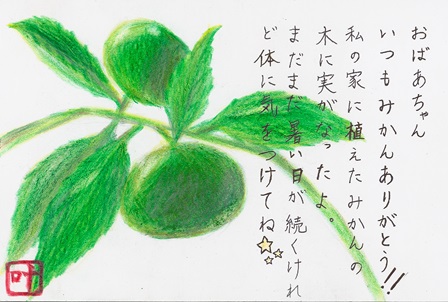 おばあちゃん
いつもみかんありがとう!!
私の家に植えたみかんの
木に実がなったよ。
まだまだ暑い日が続くけれ
ど体に気をつけてね
叶